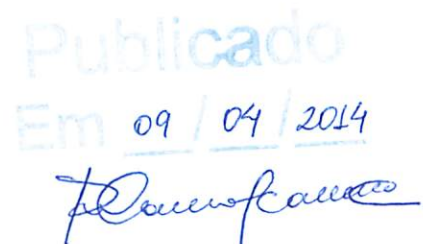 Publicado
Em 09 / 04 / 2014